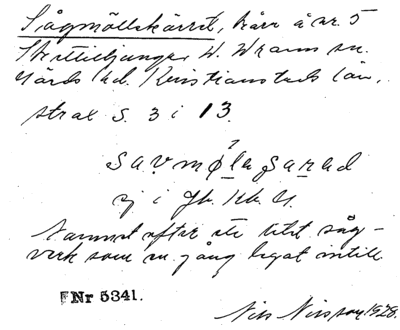 Sågmöllskärret, kärr å nr. 5
Skättilljunga, W. Wram sn.
Gärds hd. Kristianstads län,
strax S. 3 i 13.
savmølasarad
ej i Jb. Kk. U.
Namnet efter ett litet såg-
verk som en gång legat intill
FNr 5341.
Nils Nilsson, 1928.